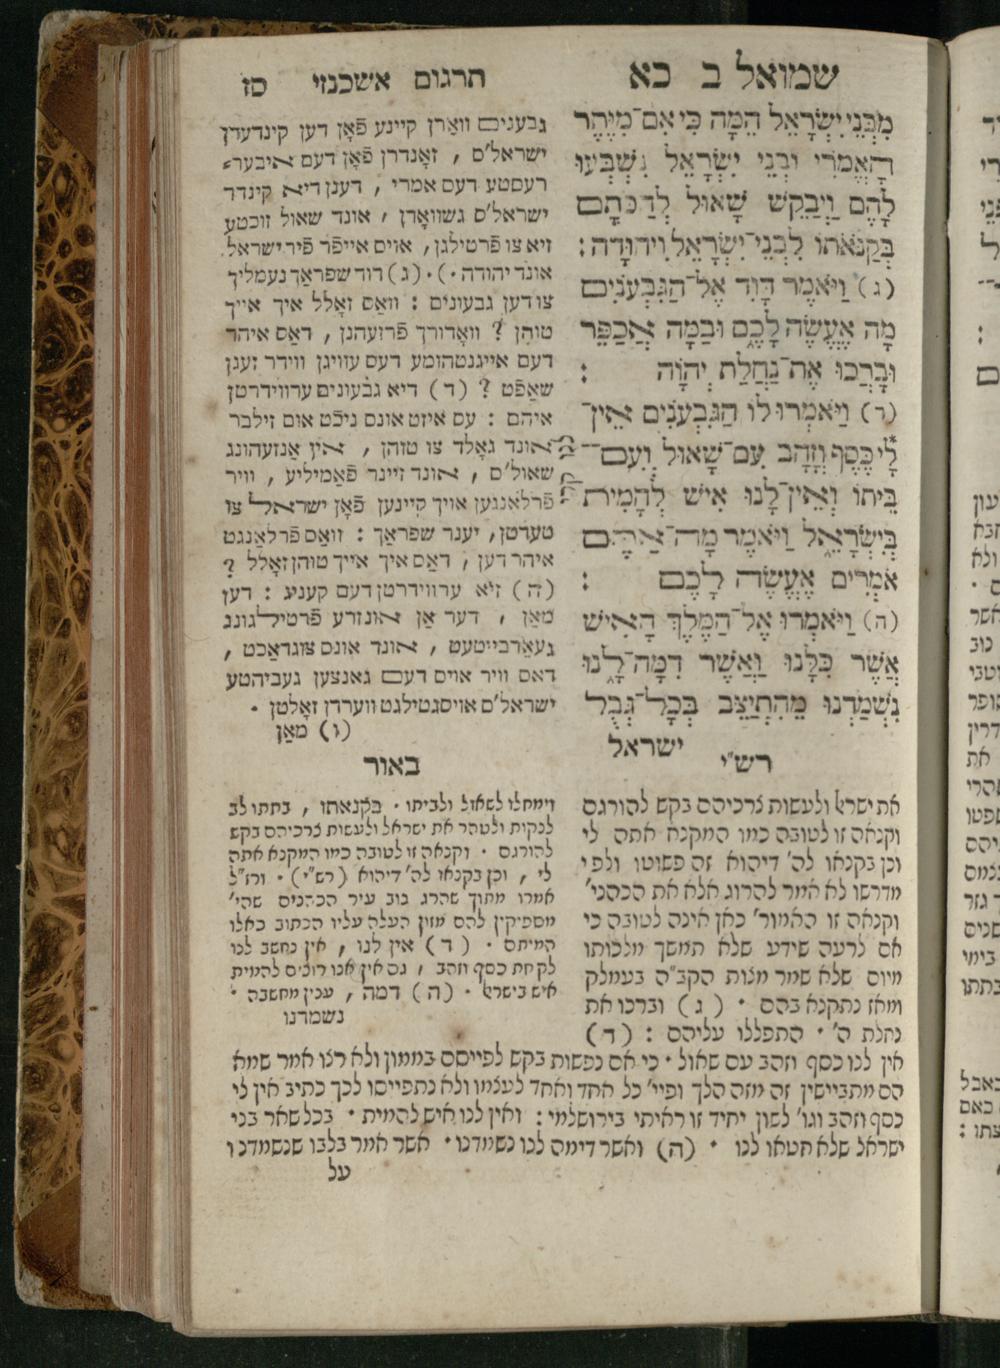 שמואל ב כא
תרגום אשכנזי
סז
מִבְּנֵי יִשְׂרָאֵל הֵמָּה כִּי אִם־מִיֶּתֶר
הָאֱמֹרִי וּבְנֵי יִשְׂרָאֵל נִשְׁבְּעוּ
לָהֶם וַיְבַקֵּשׁ שָׁאוּל לְהַכֹּתָם
בְּקַנֹּאתוֹ לִבְנֵי־יִשְׂרָאֵל וִיהוּדָה׃
(ג) וַיֹּאמֶר דָּוִד אֶל־הַגִּבְעֹנִים
מָה אֶעֱשֶׂה לָכֶם וּבַמָּה אֲכַפֵּר
וּבָרֲכוּ אֶת־נַחֲלַת יְהוָֹה ׃
(ד) וַיֹּאמְרוּ לוֹ הַגִּבְעֹנִים אֵין־
*לִי כֶּסֶף וְזָהָב עִם־שָׁאוּל וְעִם־
בֵּיתוֹ וְאֵין־לָנוּ אִישׁ לְהָמִית
בְּיִשְׂרָאֵל וַיֹּאמֶר מָה־אַתֶּם
אֹמְרִים אֶעֱשֶׂה לָכֶם ׃
(ה) וַיֹּאמְרוּ אֶל־הַמֶּלֶךְ הָאִישׁ
אֲשֶׁר כִּלָּנוּ וַאֲשֶׁר דִּמָּה־לָנוּ
נִשְׁמַדְנוּ מֵהִתְיַצֵּב בְּכָל־גְּבֻל
ישראל
לנו קרי
גבענים ווארן קיינע פֿאָן דען קינדערן
ישראל'ס , זאָנדרן פֿאָן דעם איבער⸗
רעסטע דעם אמרי , דענן דיא קינדר
ישראל'ס געשוואָרן , אונד שאול זוכטע
זיא צו פֿרטילגן, אויס אייפֿר פֿיר ישראל
אונד יהודה.). (ג) דוד שפראך נעמליך
צו דען גבעונים : וואס זאָלל איך אייך
טוהן ? וואָדורך פֿרזעהנן , דאס איהר
דעם אייגנטהומע דעם עוויגן ווידר זעגן
שאפֿט ? (ד) דיא גבעונים ערווידרטן
איהם : עס איזט אונס ניכֿט אום זילבר
אונד גאָלד צו טוהן , אין אנזעהונג
שאול'ס , אונד זיינר פֿאמיליע , וויר
פֿרלאנגען אויך קיינען פֿאָן ישראל צו
טעדטן, יענר שפראך : וואס פֿרלאנגט
איהר דען , דאס איך אייך טוהן זאָלל ?
(ה) זיא ערווידרטן דעם קעניג : דען
מאן , דער אן אונזרע פֿרטילגונג
געארבייטעט , אונד אונס צוגדאכט ,
דאס וויר אויס דעם גאנצען געביהטע
ישראל'ס אויסגטילגט ווערדן זאָלטן .
(ו) מאן
רש"י
את ישראל ולעשות צרכיהם בקש להורגם
וקנאה זו לטובה כמו המקנא אתה לי
וכן בקנאו לה' דיהוא זה פשוטו ולפי
מדרשו לא אמר להרוג אלא את הכהני'
וקנאה זו האמור' כאן אינה לטובה כי
אם לרעה שידע שלא תמשך מלכותו
מיום שלא שמר מצות הקב"ה בעמלק
ומאז נתקנא בהם . (ג) וברכו את
נחלת ה' . התפללו עליהם : (ד)
אין לנו כסף וזהב עם שאול . כי אם נפשות בקש לפייסם בממון ולא רצו אמר שמא
הם מתביישין זה מזה הלך ופיי' כל אחד ואחד לעצמו ולא נתפייסו לכך כתיב אין לי
כסף וזהב וגו' לשון יחיד זו ראיתי בירושלמי : ואין לנו איש להמית . בכל שאר בני
ישראל שלא חטאו לנו . (ה) ואשר דימה לנו נשמדנו . אשר אמר בלבו שנשמדנו
על
באור
וימחלו לשאול ולביתו . בקנאתו , בתתו לב
לנקות ולטהר את ישראל ולעשות צרכיהם בקש
להורגם . וקנאה זו לטובה כמו המקנא אתה
לי , וכן בקנאו לה' דיהוא (רש"י) . ורז"ל
אמרו מתוך שהרג נוב עיר הכהנים שהי'
מספיקין להם מזון העלה עליו הכתוב כאלו
המיתם . (ד) אין לנו , אין נחשב לנו
לקחת כסף וזהב , גם אין אנו רוצים להמית
איש בישראל . (ה) דמה , ענין מחשבה .
נשמדנו